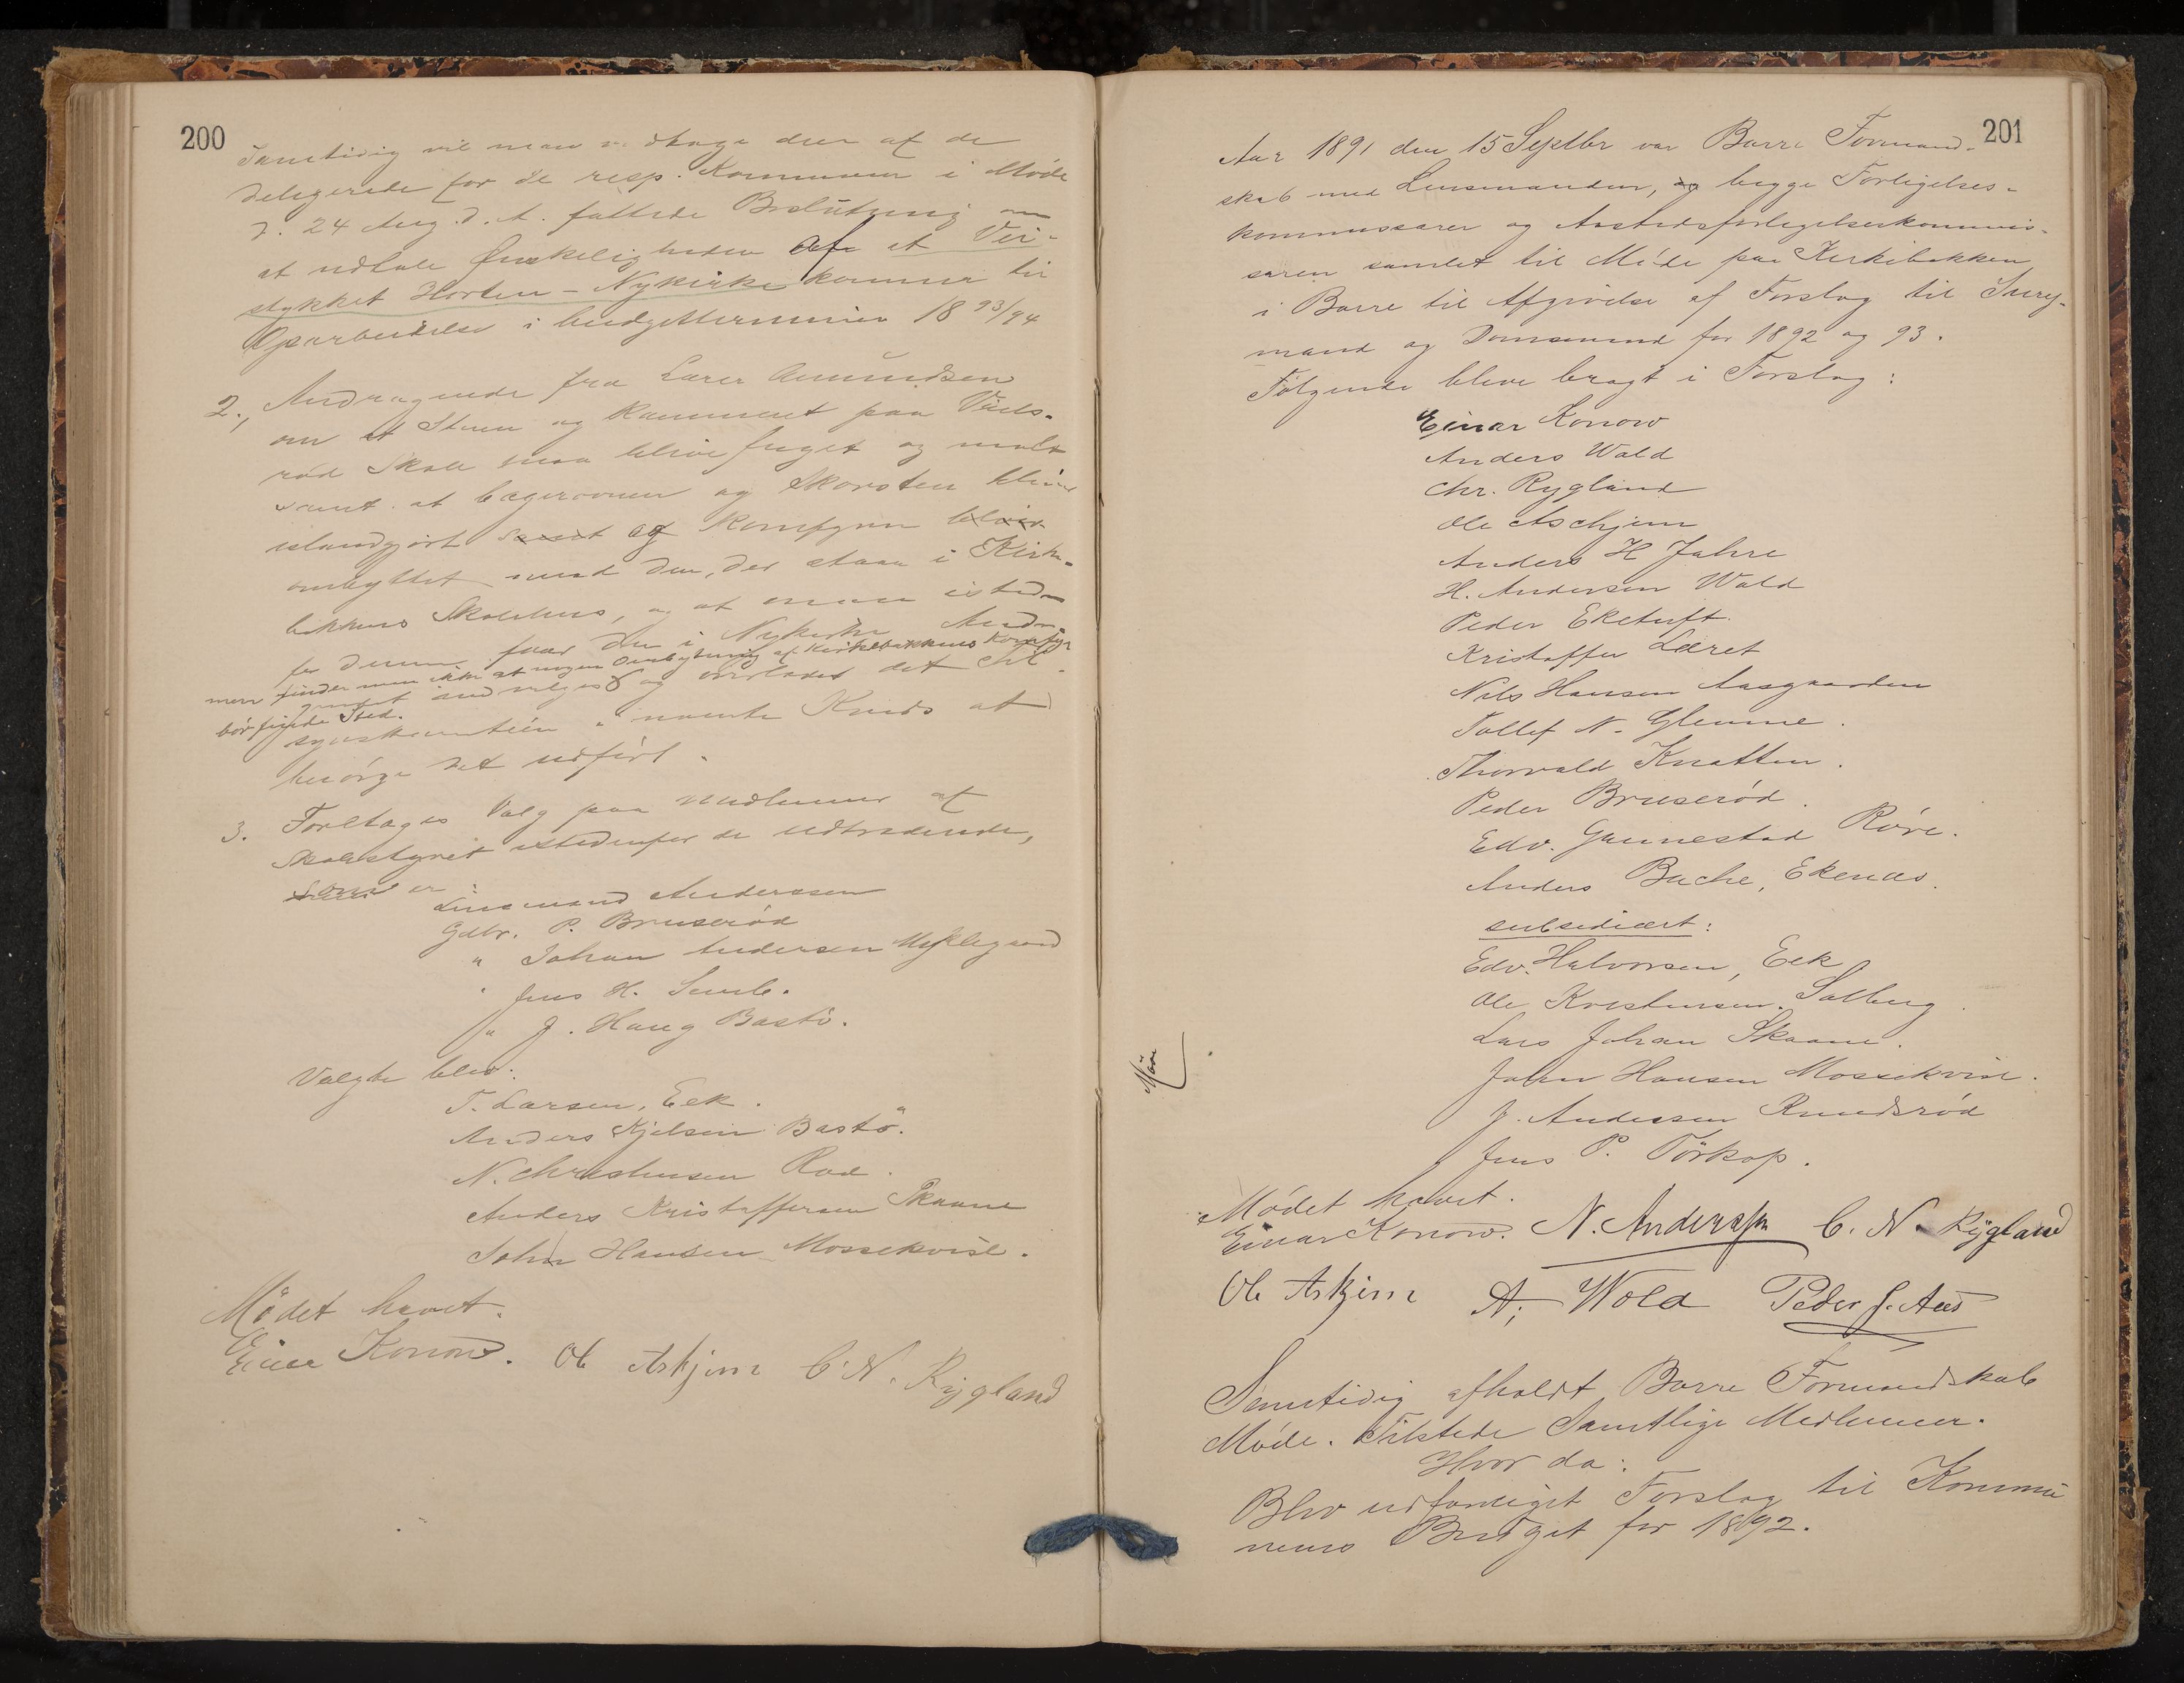 200
Samtidig vil man vedtage den af de
delegerede for de resp. Kommuner i Møde
d. 24 Aug. d. A. fattede Beslutning om
at udtale Ønskeligheden af at Vei-
stykket Horten - Nykirke kommer til
Oparbeidelse i budgetterminen 1893/94
2., Andragende fra Lærer Amundsen
om at Stuen og Kammeret paa Viels-
rød Skole maa blive fuget og malt
samt at bagerovnen og Skorsten blive
istandgjort samt og Komfyren bliver
ombyttet med den, der staar i Kirke-
bakkens Skolehus, og at man isteden-
for denne faar den i Nykirke. Andra-
men finder man ikke at nogen Ombytning af Kirkebakkens Komfyr
gendet indvilges og overlades det til
bør finde Sted.
synskomiteen i nævnte Kreds at
besørge det udført.
3. Foretages Valg paa Medlemmer af
Skolestyret istedenfor de udtrædende,
som er:
Lensmand Anderssen
Gdbr. P. Bruserød
" Johan Andersen Myklegaard
" Jens H. Semb.
" J. Haug Bastø.
Valgte blev:
T. Larsen, Eek.
Anders Kjelsen Bastö.
N. Christensen Rød.
Anders Kristoffersen Skaane
John Hansen Mossekvist.
Mödet hævet.
Einar Konow. Ole Askjem C. N. Rygland
201
Aar 1891 den 15 Septbr var Borre Formand-
skab med Lensmanden, og begge Forligelses-
kommissærer og Aastedsforligelseskommis-
særen samlet til Møde paa Kirkebakken
i Borre til Afgivelse af Forslag til Jury-
mænd og Domsmænd for 1892 og 93.
Følgende bleve bragt i Forslag:
Einar Konow
Anders Wold
Chr. Rygland
Ole Aschjem
Anders H Jahre
H. Andersen Wold
Peder Eketuft.
Kristoffer Læret
Nils Hansen Aasgaarden
Tollef N. Glenne.
Thorvald Knatten.
Peder Bruserød.
Edv. Gannestad Røre.
Anders Bache, Ekenæs.
subsidiært:
Edv. Halvorsen, Eek
Ole Kristensen, Solberg.
Lars Johan Skaane.
John Hansen Mossekvist.
J. Anderssen Rundsrød
Jens P. Törkop.
Mødet hævet.
Einar Konow. N. Anderssen C. N. Rygland
Ole Askjem A. Wold Peder J. Aas
Samtidig afholdt Borre Formandskab
Møde. Tilstede Samtlige Medlemmer.
Hvor da:
Blev udfærdiget Forslag til Kommu
nens Budget for 1892.